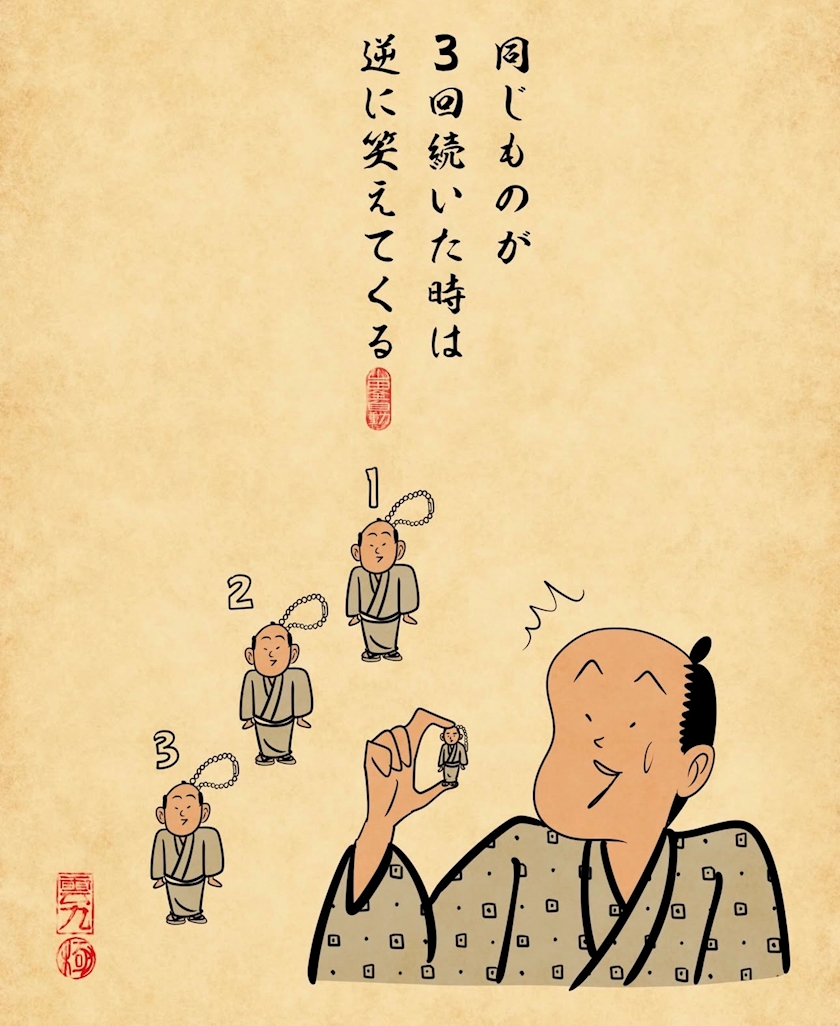 同じものが
3回続いた時は
逆に笑えてくる
1
2
3